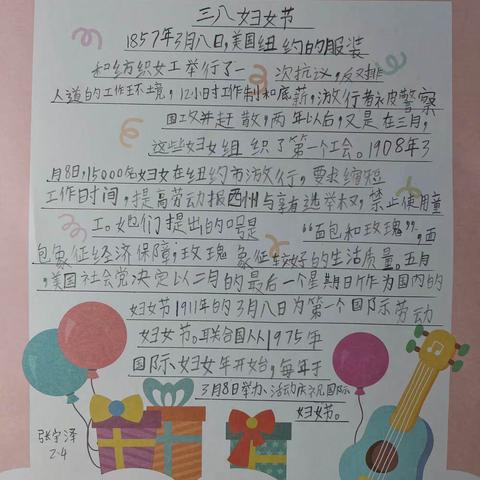 三八妇女节
1857年3月八日,美国纽约的服装
和纺织女工举行了一次抗议,反对非
人道的工作环境,12小时工作制和底薪,游行者被警察
围攻并赶散,两年以后,又是在三月,
这些妇女组织了第一个工会。1908年3
月8日,15000名妇女在纽约市游行,要求缩短
工作时间,提高劳动报酬与享有选举权,禁止使用童
工。她们提出的口号是“面包和玫瑰”,面
包象征经济保障,玫瑰象征较好的生活质量。五月
,美国社会党决定以二月的最后一个星期日作为国内的
妇女节1911年的3月八日为第一个国际劳动
妇女节。联合国从1975年
国际妇女年开始,每年于
3月8日举办活动庆祝国际
妇女节。
张宇泽
2.4